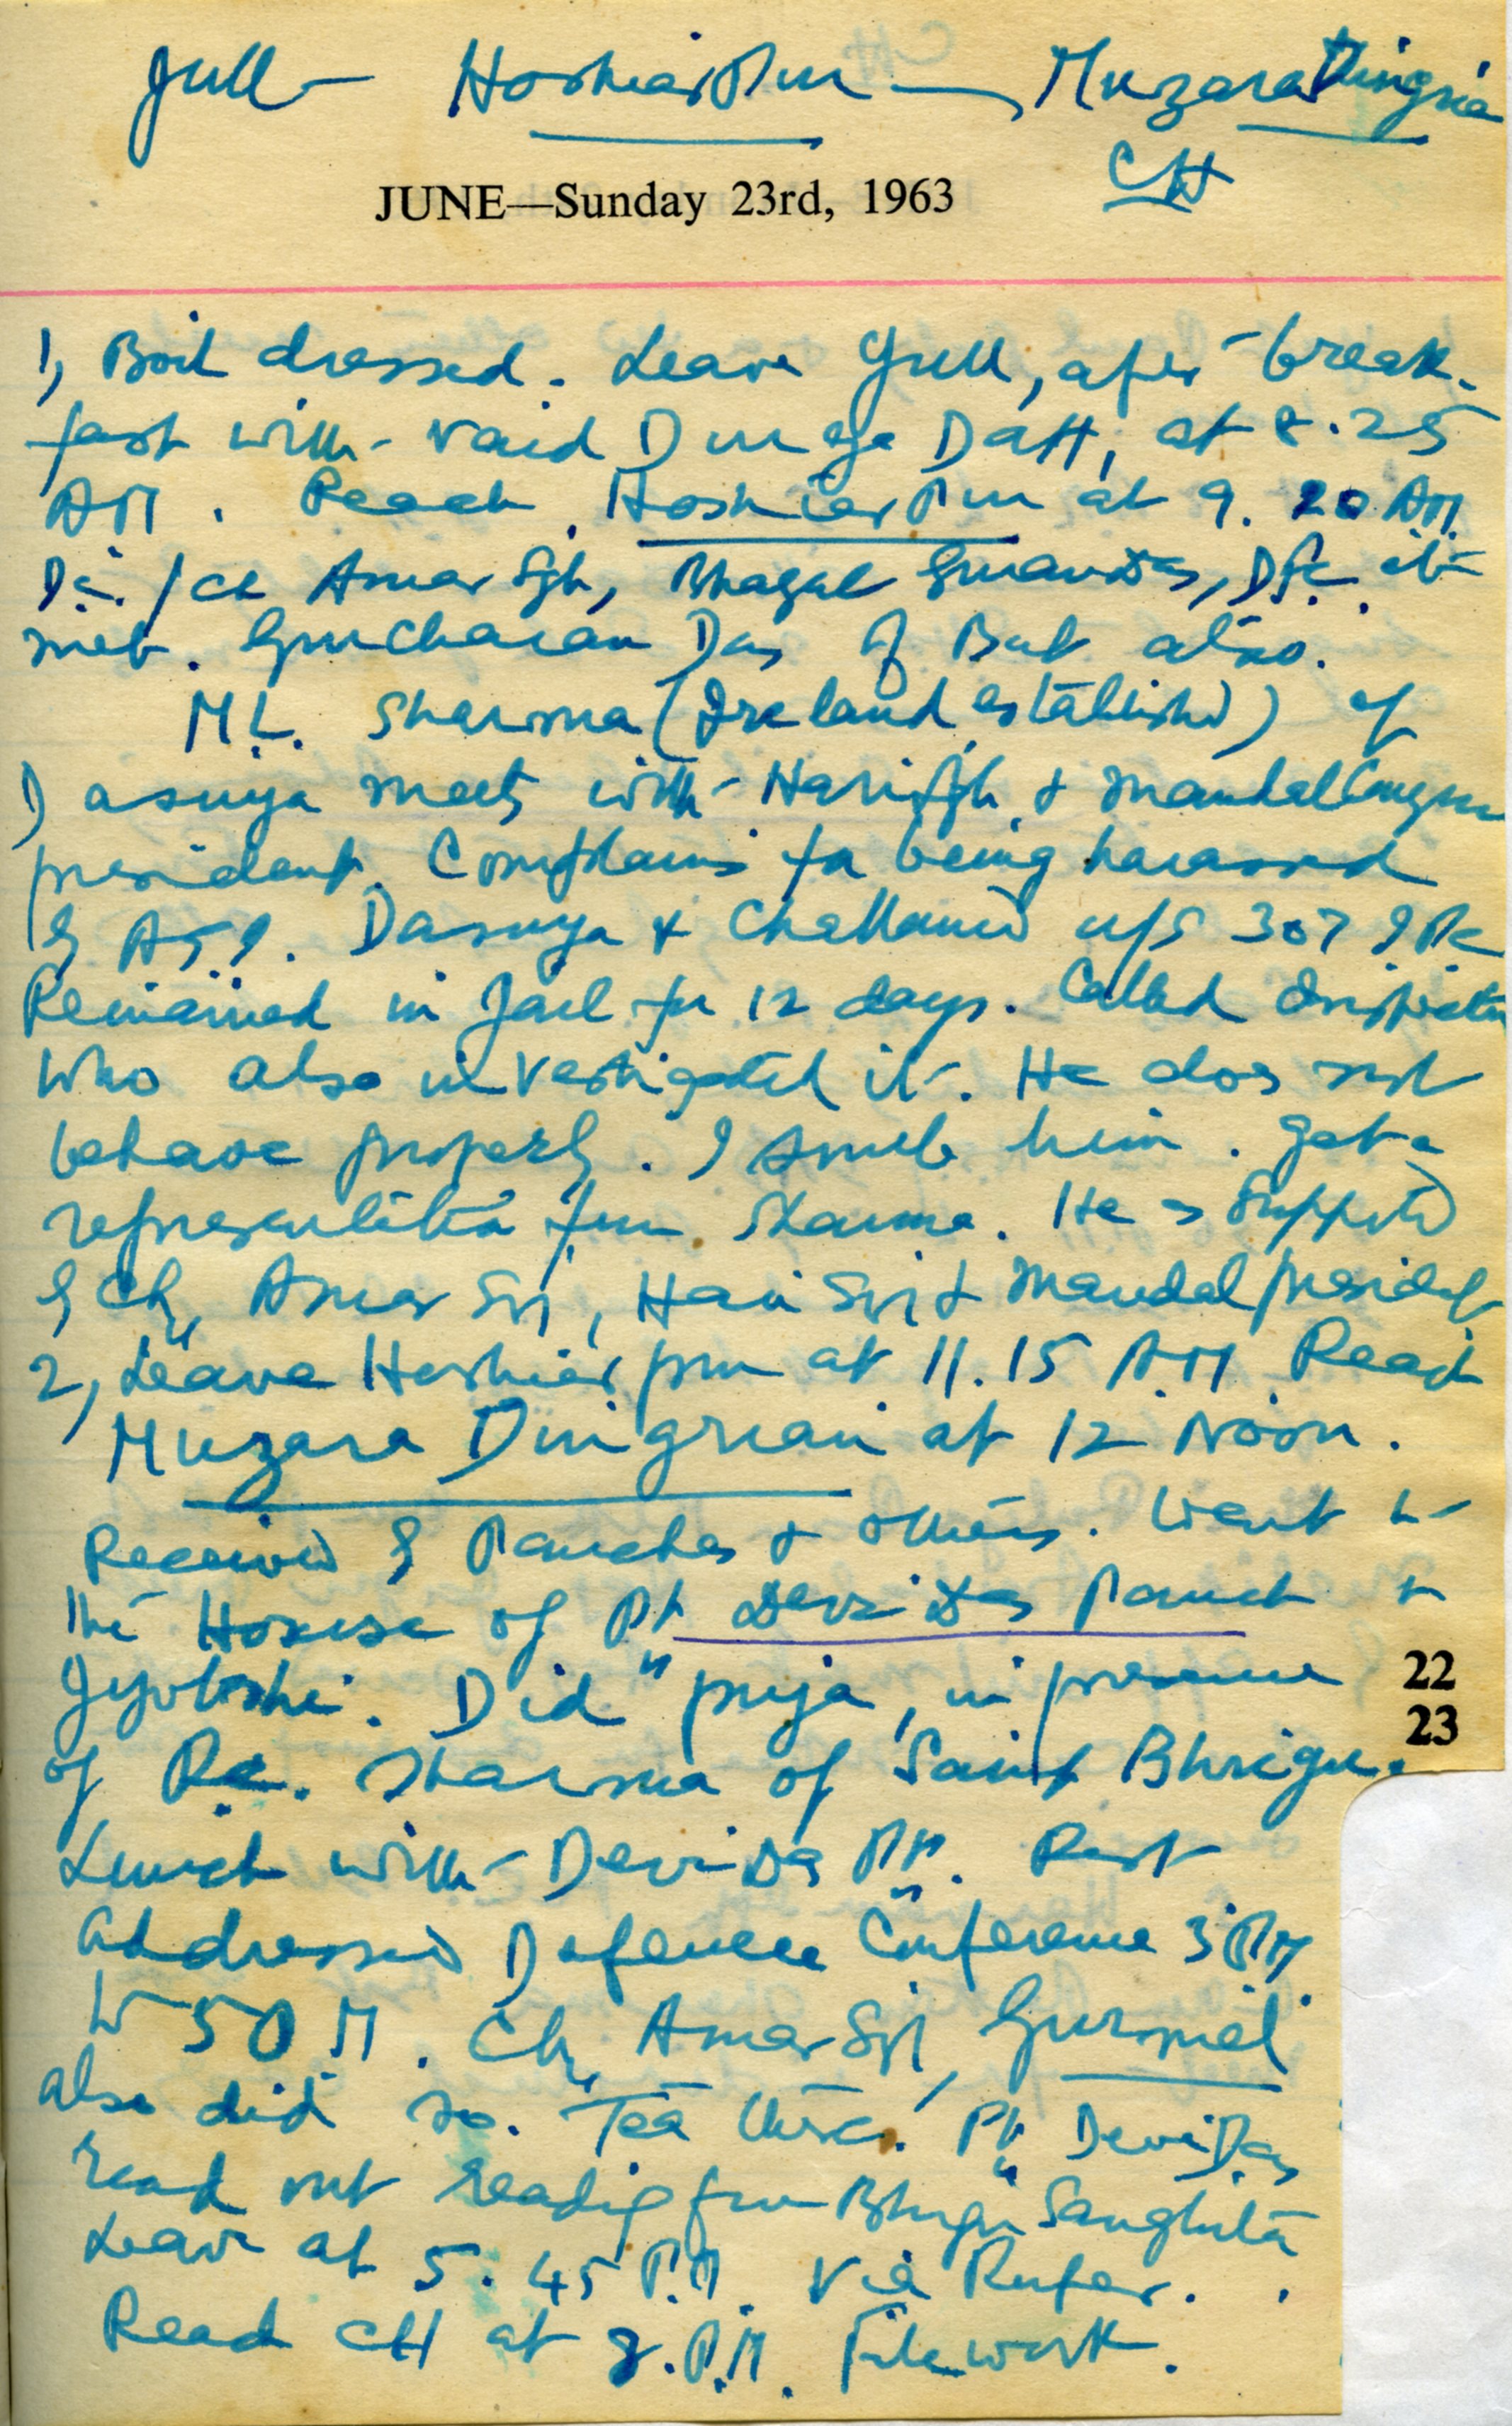 Jull — Hoshiarpur — Muzara Dingria
CH
JUNE—Sunday 23rd, 1963
1, Boil dressed. Leave Jull, after break-
fast with Vaid Durga Datt, at 8.25
AM. Reach Hoshiarpur at 9.20 AM
Amar Sgh, Bhagat Guran Das, etc
met. Gurcharan Das of But also.
M.L. Sharma (Ireland established) of
Dasuya meets with Hari Sgh & Mandal Congress
president. Complains for being harassed
by ASI. Dasuya & Challaned u/S 307 IPC
Remained in Jail for 12 days. Called Inspector
who also investigated it. He does not
behave properly. I snub him. Get a
representation from Sharma. He is supported
by Ch. Amar Sgh, Hari Sgh & Mandal president
2, Leave Hoshiarpur at 11.15 A.M. Reach
Muzara Dingrian at 12 Noon.
Received by Panches & others. Went to
the House of Pt Devi Das Panch &
Jyotishi. Did puja, in presence
22
of R.C. Sharma of Saint Bhrigu.
23
Lunch with Devi Das Pt. Rest
Addressed Defence Conference 3 PM.
to 5 P.M. Ch. Amar Sgh, Gurmel
also did so. Tea there. Pt Devi Das
read out reading from Bhrigu Sanghita
Leave at 5.45 P.M. Via Rupar.
Reach CH at 8.P.M. File work.